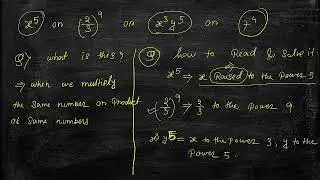 x⁵ or (2/3)⁹ or x³y⁵ or 7⁴
Q) what is this?
⇒ when we multiply
the same number or Product
of same numbers
Q) how to Read & solve it:
x⁵ ⇒ x Raised to the Power 5
(2/3)⁹ ⇒ 2/3 to the Power 9
x³y⁵ = x to the power 3, y to the
Power 5.